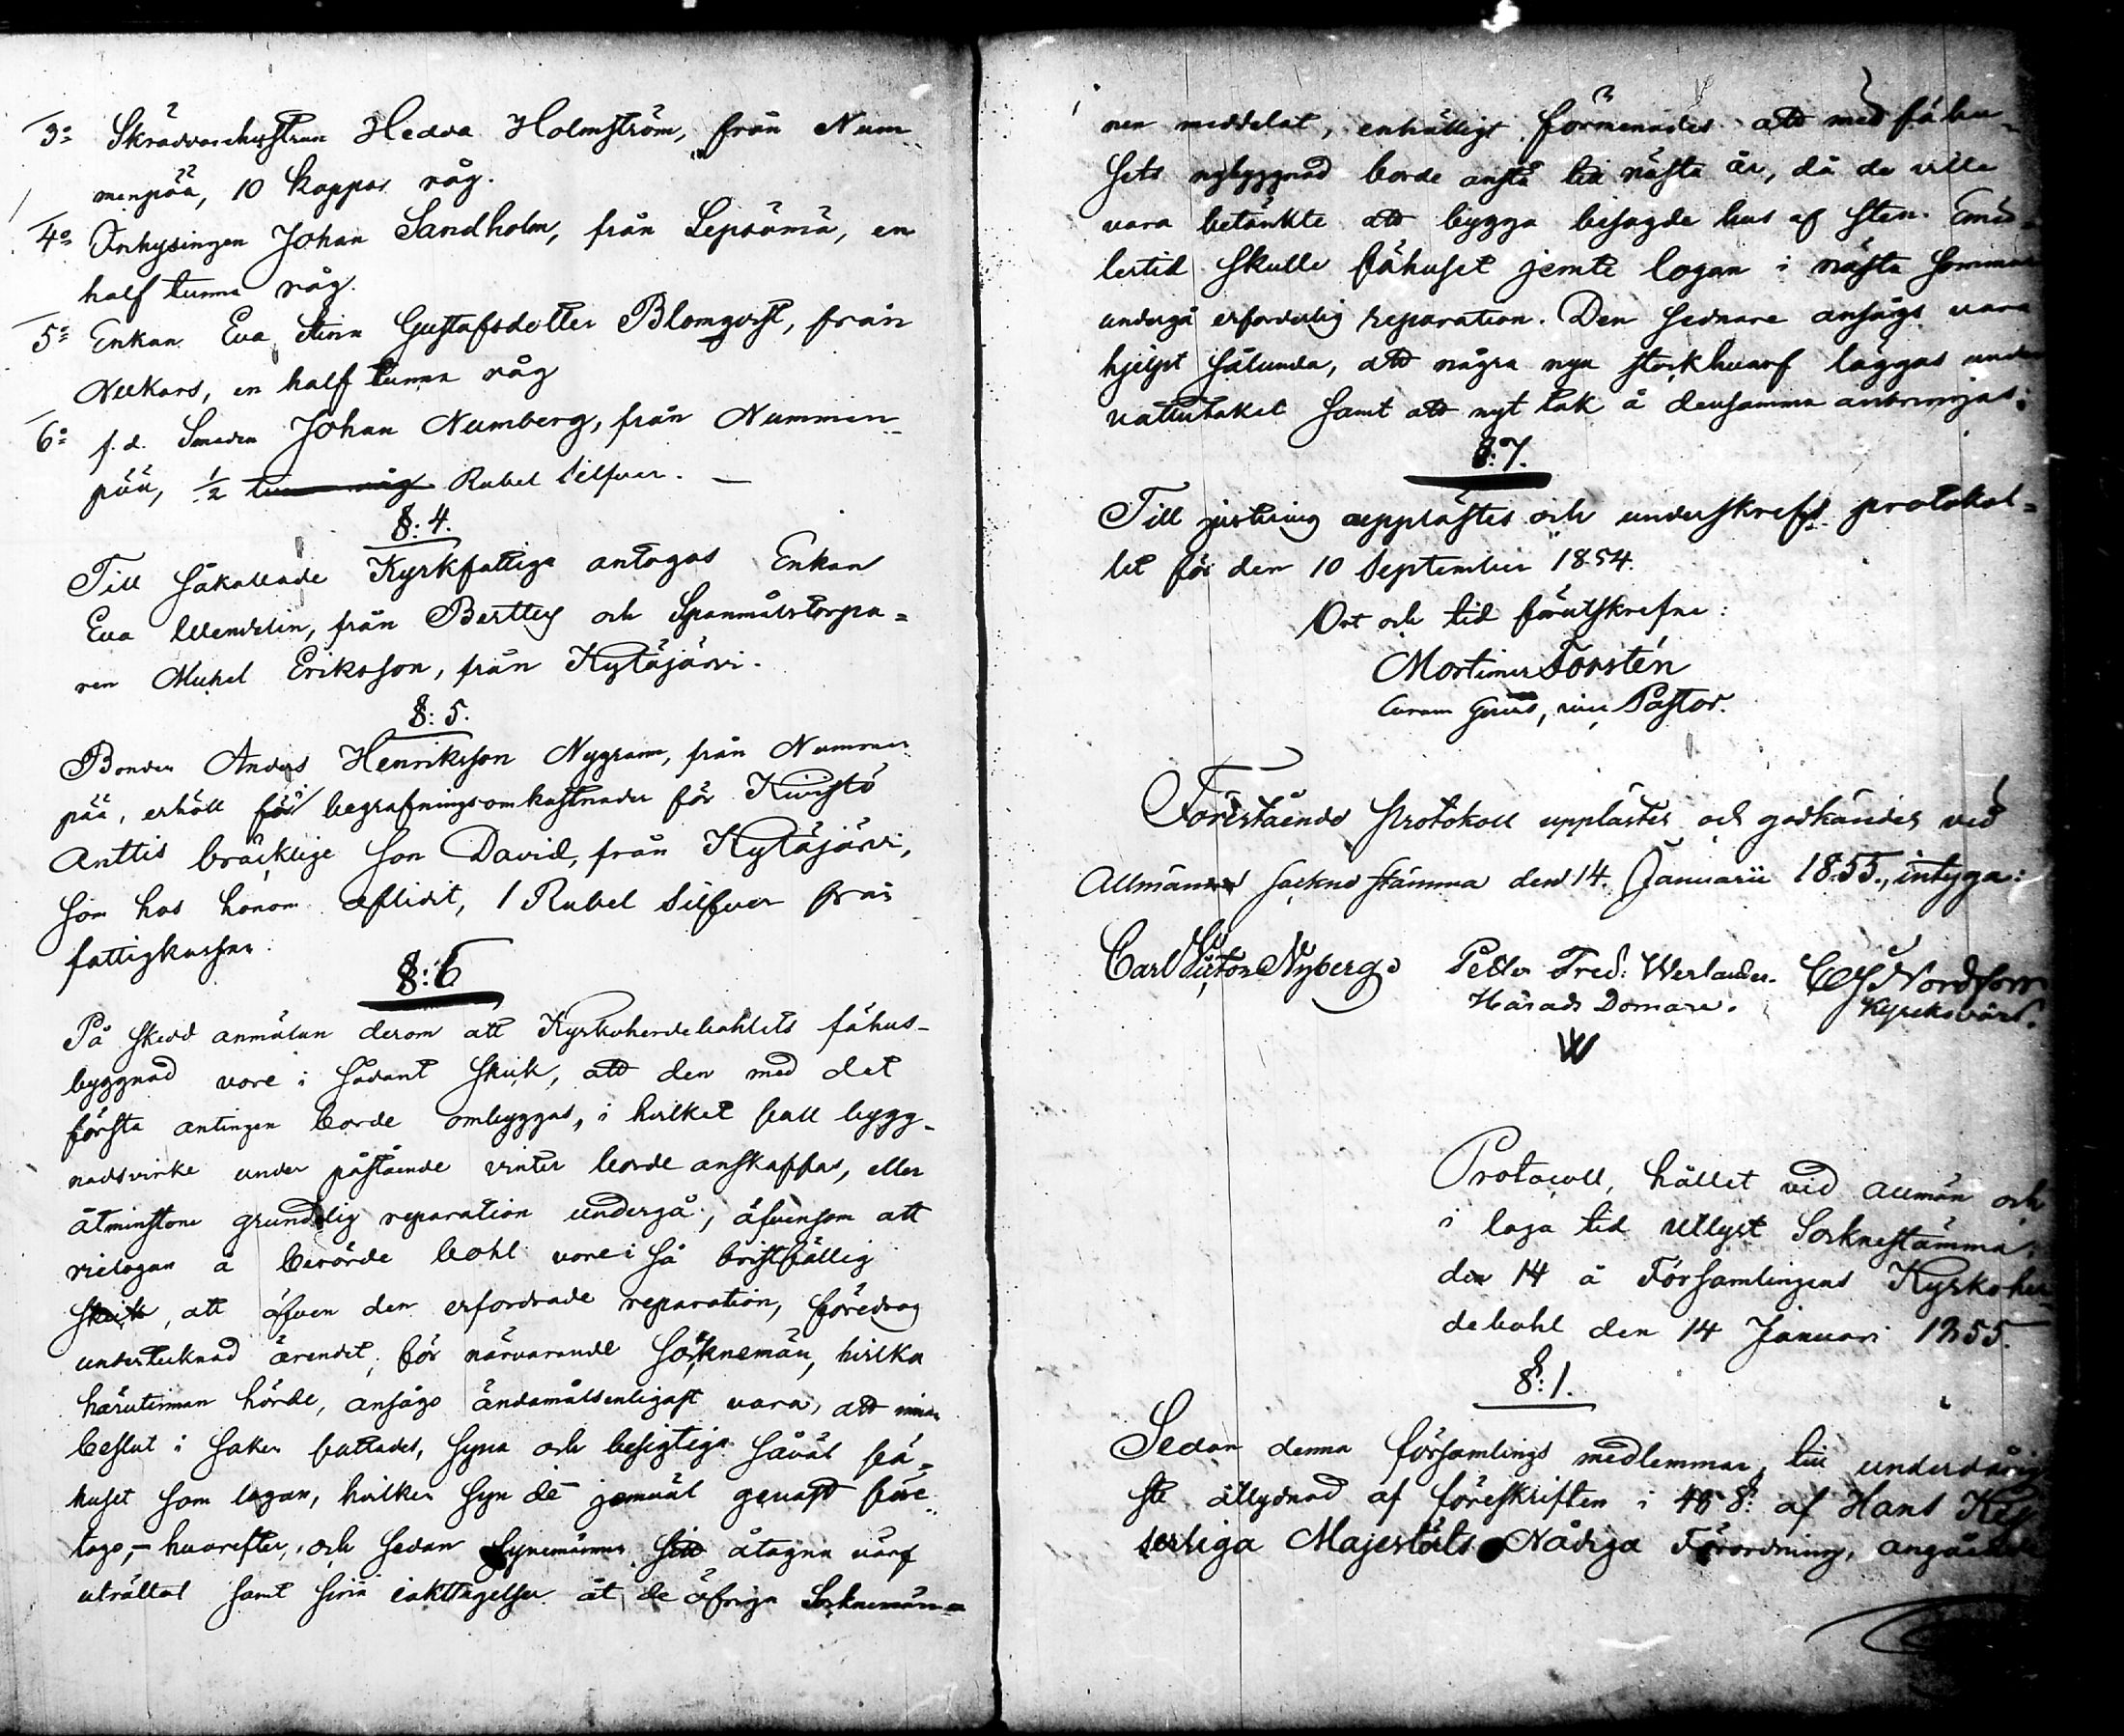 3o Skräddarehustrun Hedva Holmström, från Num-
menpää, 10 kappar råg.
4o Inhysingen Johan Sandholm, från Lepsämä, en
half tunna råg.
5o Enkan Eva Stina Gustafsdotter Blomqvist, från
Nukars, en half tunna råg
6o f. d. Smeden Johan Numberg, från Nummen-
pää, 1/2 Rubel Silfver. —
§: 4.
Till såkallade Kyrkfattige antogos Enkan
Eva Wendelin, från Bertby och Spanmålstorpa-
ren Mickel Eriksson, från Kytäjärvi.
§: 5.
Bonden Anders Henriksson Nygrann, från Nummen
pää, erhöll för begrafningsomkostnader för Kuvistö
Anttis bräcklige son David, från Kytäjärvi,
som hos honom aflidit, 1 Rubel Silfver från
fattigkassan.
§: 6
På skedd anmälan derom att Kyrkoherdebohlets fähus-
byggnad vore i sådant skick, att den med det
första antingen borde ombyggas, i hvilket fall bygg-
nadsvirke under påstående vinter borde anskaffas, eller
åtminstone grundelig reparation undergå, äfvensom att
rielogan å berörde bohl vore i så bristfällig
skick, att äfven den erfordrade reparation, föredrog
undertecknad ärendet för närvarande Socknemän, hvilka
härutinnan hörde, ansågo ändamålsenligast vara, att innan
beslut i saken fattades, syna och besigtiga såväl fä-
huset som logan, hvilken syn de jemväl genast före-
togo, – hvarefter, och sedan Synemännen sitt åtagna värf
uträttat samt sina iakttagelser åt de öfriga Socknemän-
nen meddelat, enhälligt förmenades att med fähu-
sets nybyggnad borde anstå till nästa år, då de ville
vara betänkte att bygga besagde hus af sten. Emed-
lertid skulle fähuset jemte logan i nästa sommar
undergå erforderlig reparation. Den sednare ansågs vara
hjelpt sålunda, att några nya stockhvarf läggas under
vattutaket samt att nytt tak å densamma anbringas.
§: 7.
Till justering upplästes och underskrefs protokol-
let för den 10 September 1854.
Ort och tid förutskrefne:
Mortimer Forstén
Curam Gerens, vice Pastor.
Förestående Protokoll upplästes och godkändes vid
Allmänna Sockne stämma den 14. Januarii 1855., intyga:
Carl Victor Nyberg Petter Fred: Werlander. C J Nordfors
Härads Domare. Kyrckovärd.
W
Protocoll, hållet vid allmän och
i laga tid utlyst Socknestämma
den 14 å Församlingens Kyrkoher-
debohl den 14 Januari 1855.
§: 1.
Sedan denna församlings medlemmar, till underdånig
ste åtlydnad af föreskriften i 48 §: af Hans Kej
serliga Majestäts Nådiga Förordning, angående